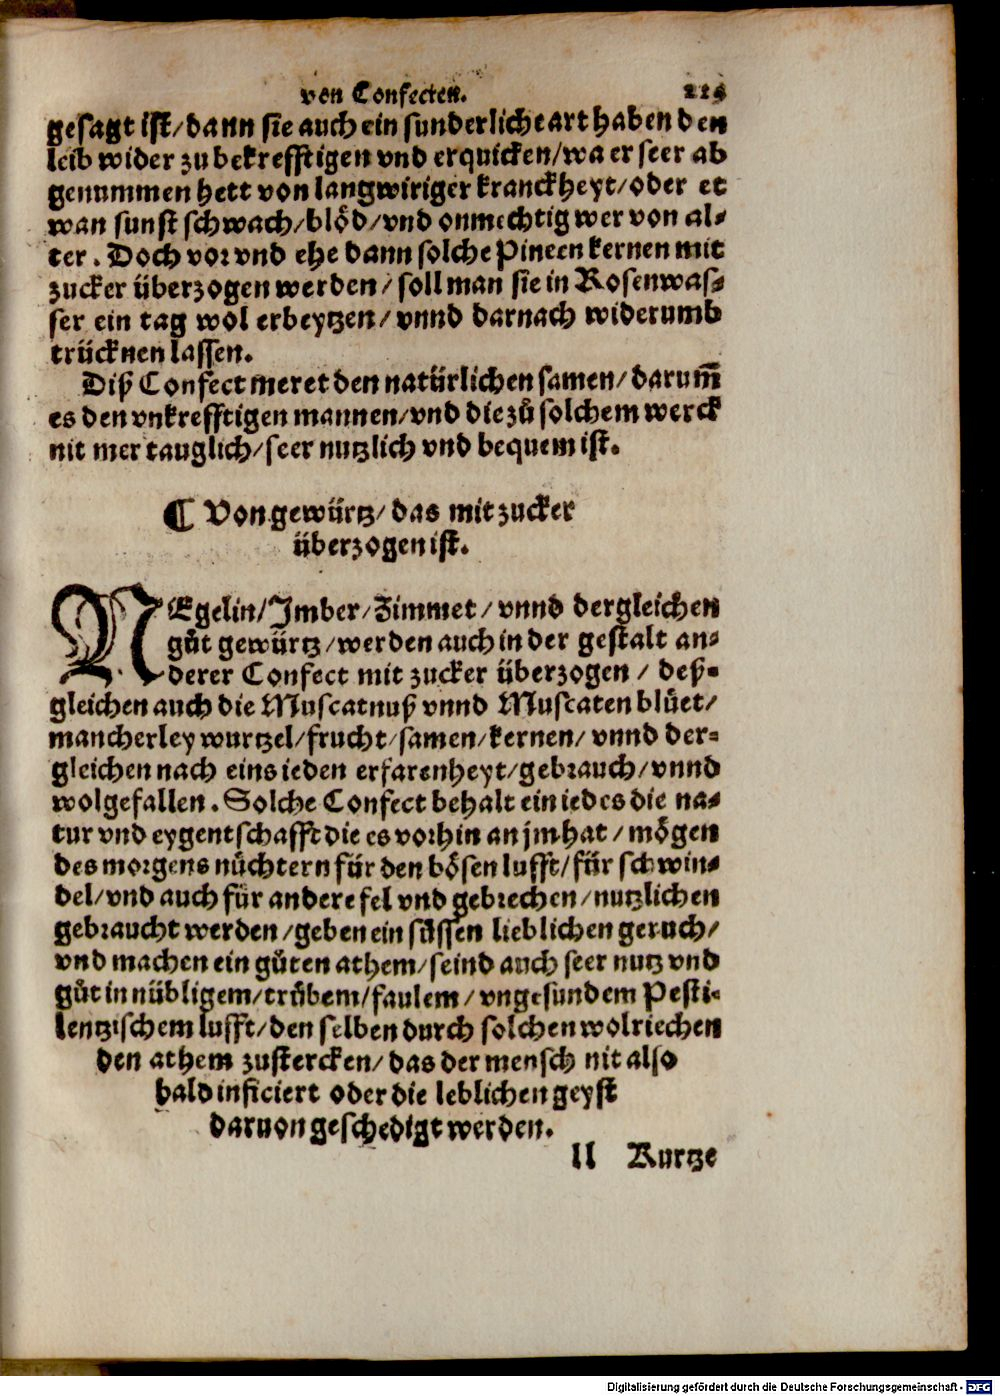 von Confecten.
gesagt ist/dann sie auch ein sunderliche art haben den
leib wider zu bekrefftigen vnd erquicken/wa er seer ab
genummen hett von langwiriger kranckheyt/oder et
wan sunst schwach/blöd/vnd onmechtig wer von al⸗
ter. Doch vor vnd ehe dann solche Pineen kernen mit
zucker überzogen werden/soll man sie in Rosenwas⸗
ser ein tag wol erbeytzen/vnnd darnach widerumb
trücknen lassen.
Diß Confect meret den natürlichen samen/darum̃
es den vnkrefftigen mannen/vnd die zů solchem werck
nit mer tauglich/seer nutzlich vnd bequem ist.
¶ Von gewürtz/das mit zucker
überzogen ist.
NEgelin/Imber/Zimmet/vnnd dergleichen
gůt gewürtz/werden auch in der gestalt an⸗
derer Confect mit zucker überzogen/deß⸗
gleichen auch die Muscatnuß vnnd Muscaten blüet/
mancherley wurtzel/frucht/samen/kernen/vnnd der⸗
gleichen nach eins ieden erfarenheyt/gebrauch/vnnd
wolgefallen. Solche Confect behalt ein iedes die na⸗
tur vnd eygentschafft die es vorhin an jm hat/mögen
des morgens nüchtern für den bösen lufft/für schwin⸗
del/vnd auch für andere fel vnd gebrechen/nutzlichen
gebraucht werden/geben ein süssen lieblichen geruch/
vnd machen ein gůten athem/seind auch seer nutz vnd
gůt in nübligem/trübem/faulem/vngesundem Pesti⸗
lentzischem lufft/den selben durch solchen wolriechen
den athem zustercken/das der mensch nit also
bald inficiert oder die leblichen geyst
daruon geschedigt werden.
ll Kurtze
Digitalisierung gefördert durch die Deutsche Forschungsgemeinschaft - DFG